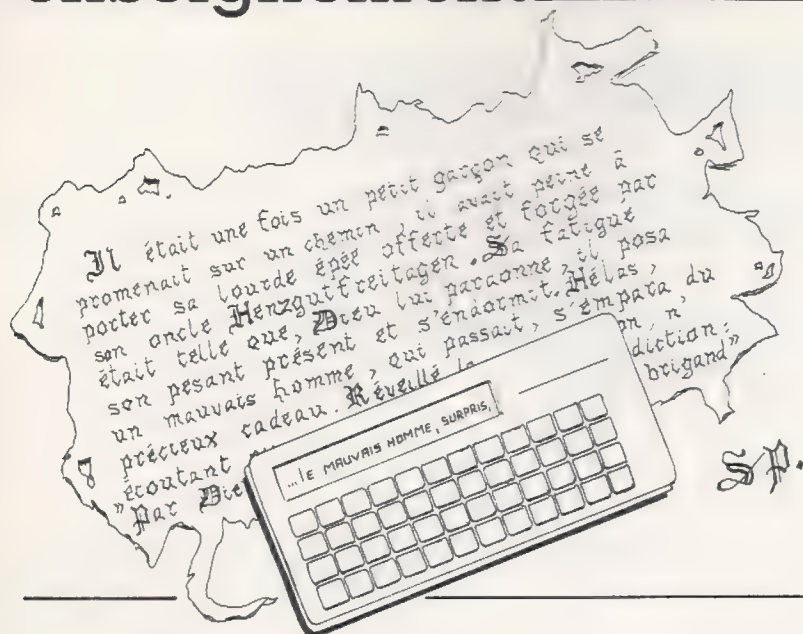 enseignement
Il était une fois un petit garçon qui se
promenait sur un chemin, il avait peine à
porter sa lourde épée offerte et forgée par
son oncle Henzgutfreitagen. Sa fatigue
était telle que, Dieu lui pardonne, il posa
son pesant présent et s'endormit. Hélas,
un mauvais homme, qui passait, s'empara du
précieux cadeau. Réveillé on, n'
écoutant diction:
"Par Die brigand"
...LE MAUVAIS HOMME, SURPRIS,
SP.